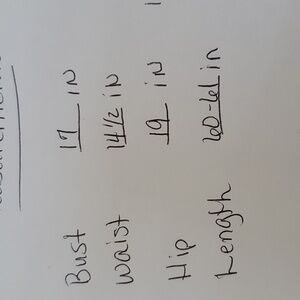 Bust 17 in
Waist 14 1/2 in
Hip 19 in
Length 60-61 in